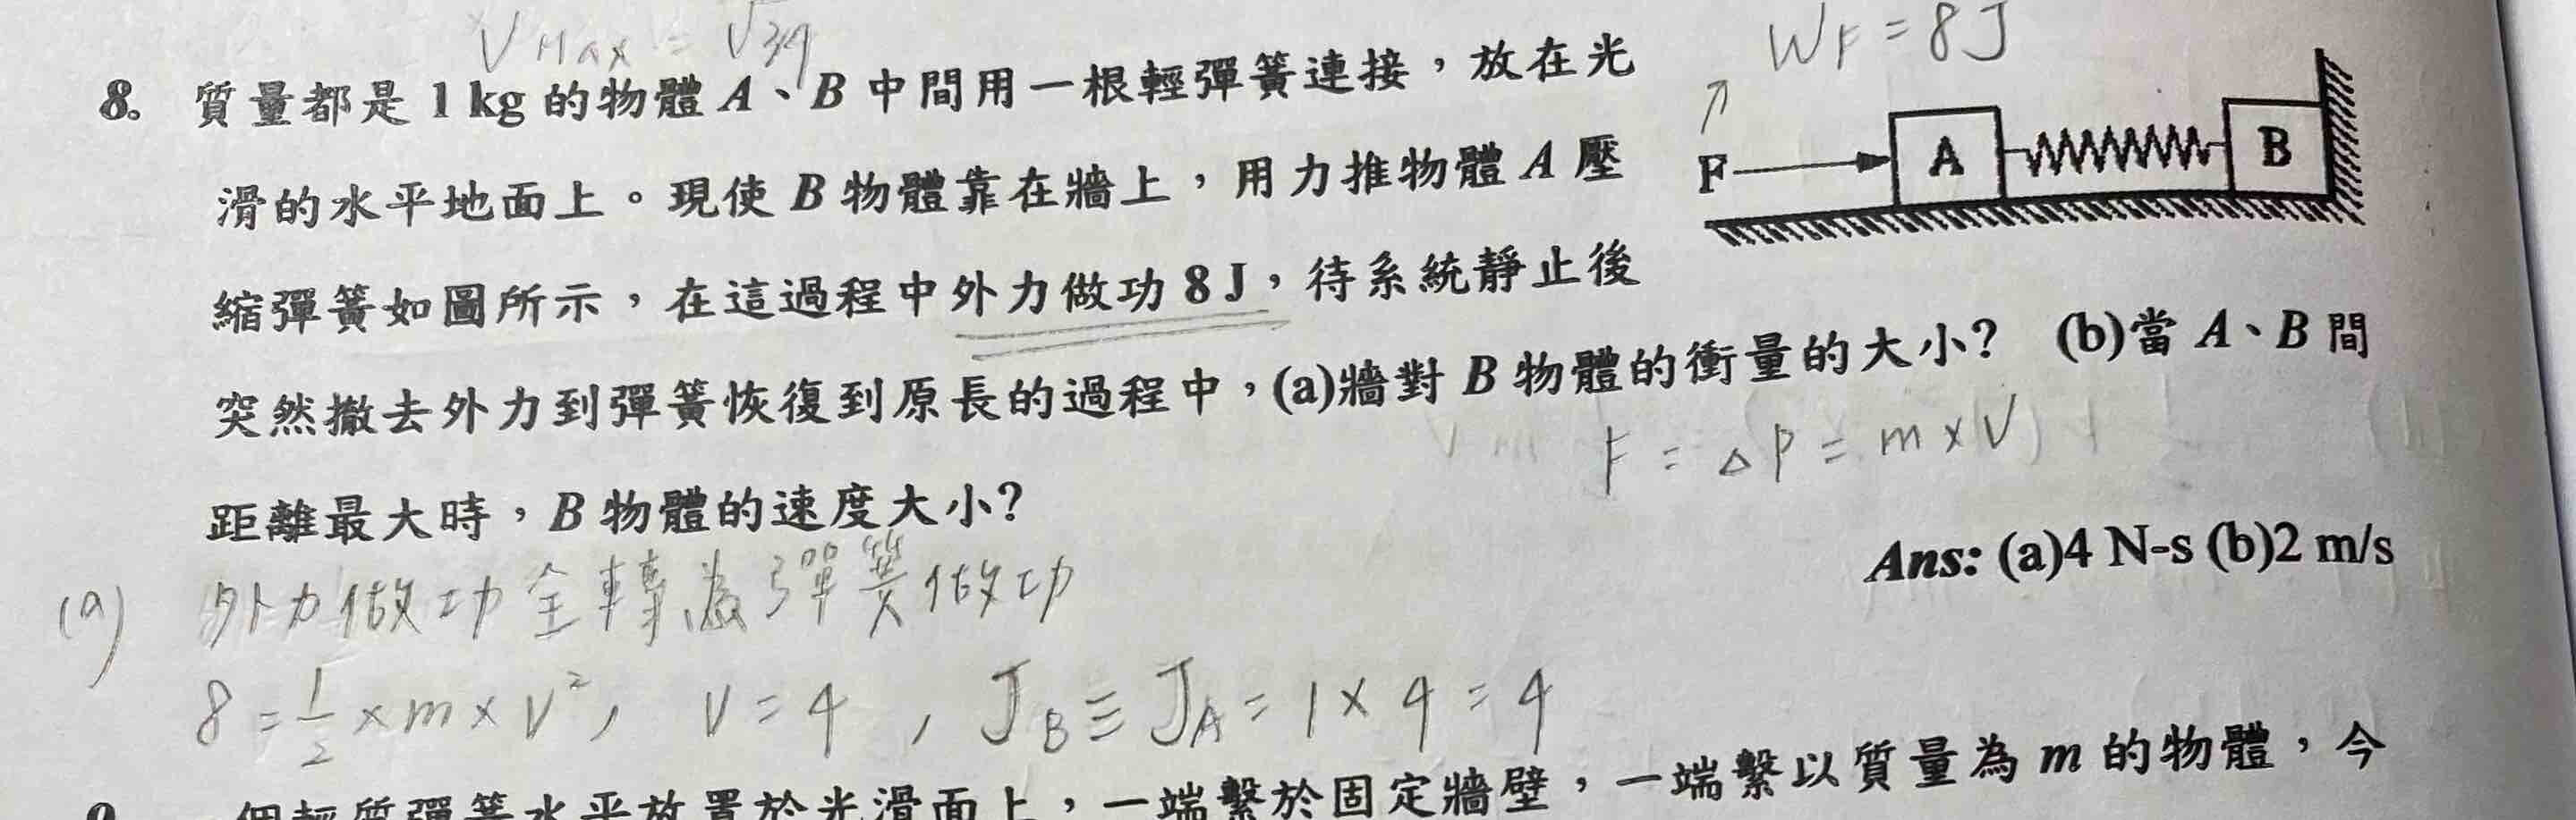 V Max = √34
W F = 8J
8. 質量都是 1 kg 的物體 A、B 中間用一根輕彈簧連接，放在光
滑的水平地面上。現使 B 物體靠在牆上，用力推物體 A 壓
縮彈簧如圖所示，在這過程中外力做功 8 J，待系統靜止後
突然撤去外力到彈簧恢復到原長的過程中，(a)牆對 B 物體的衝量的大小？ (b)當 A、B 間
距離最大時，B 物體的速度大小？
F
A
B
F = △P = m × V
Ans: (a)4 N-s (b)2 m/s
(a) 外力做功全轉為彈簧做功
8 = 1/2 × m × V², V = 4 , J_B ≡ J_A = 1 × 4 = 4
個輕質彈簧水平放置於光滑面上，一端繫於固定牆壁，一端繫以質量為 m 的物體，今